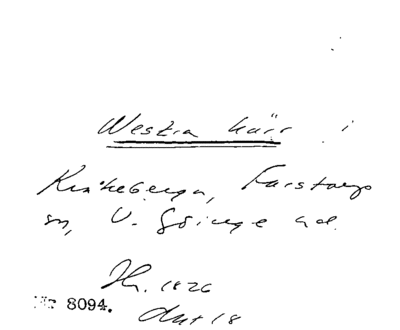 Westra kärr i
Kråkeberga, Farstorps
sn, V. Göinge hd.
Hr. 1826
Nr 8094.